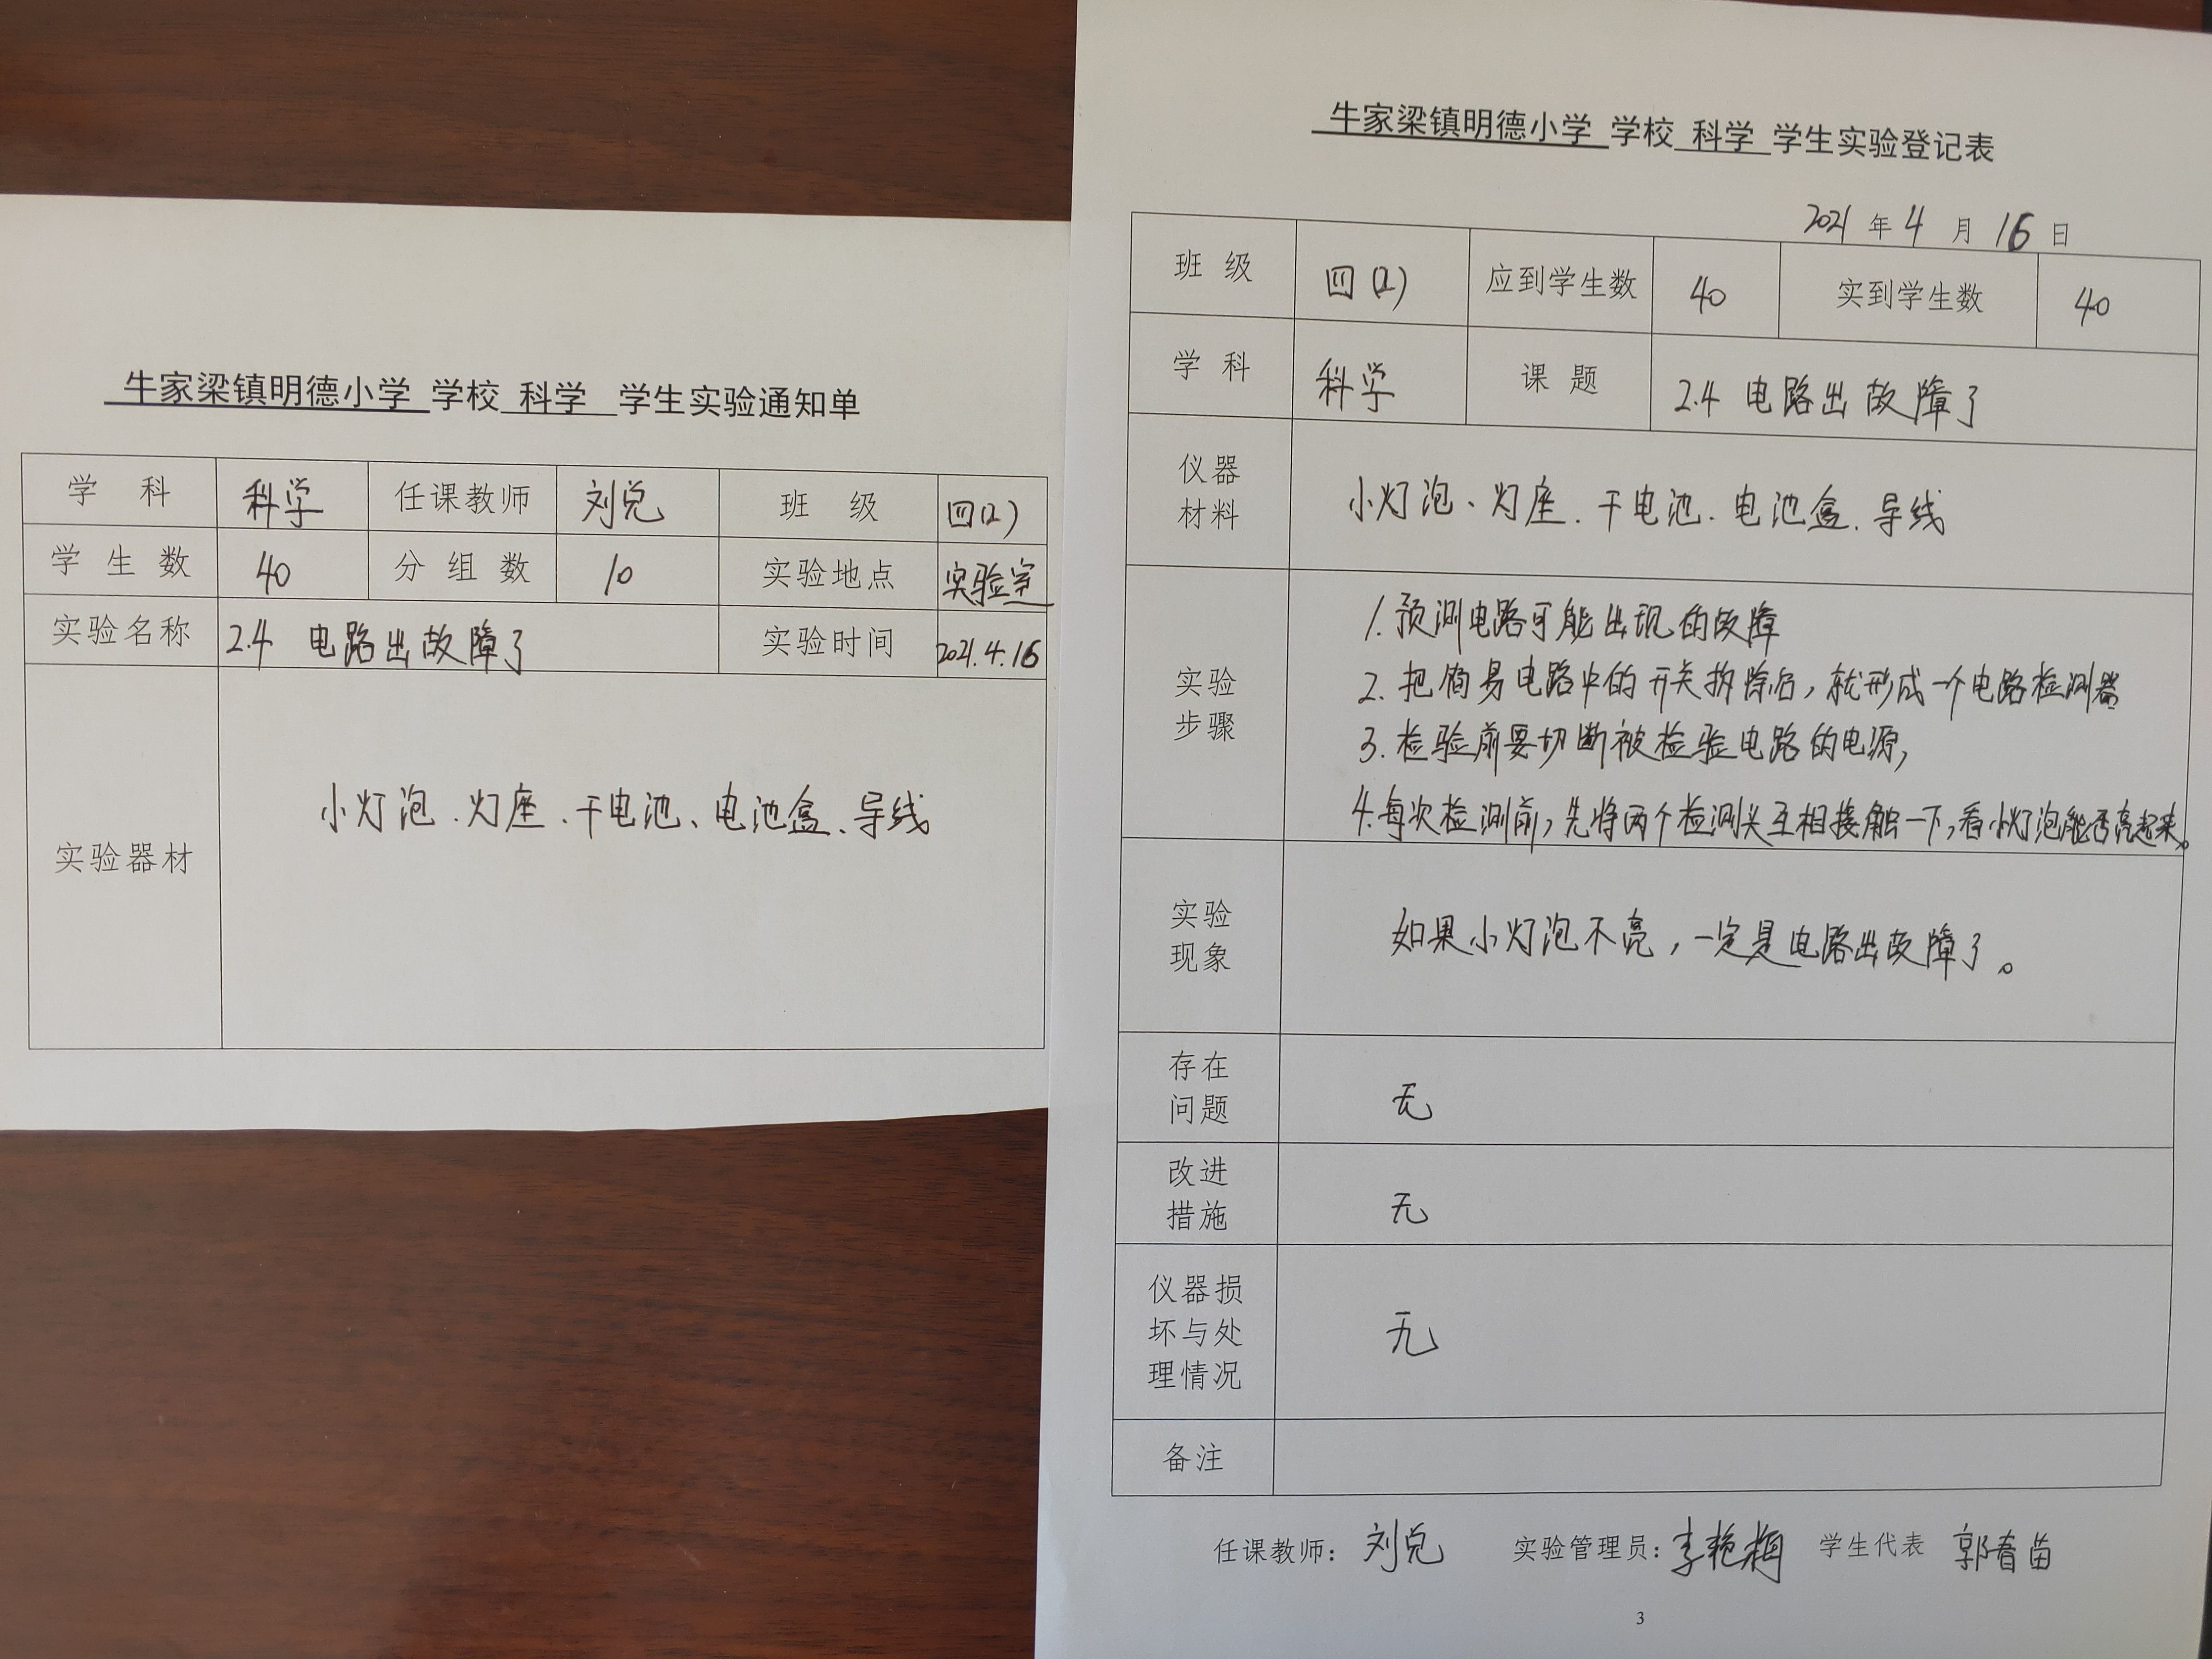 牛家梁镇明德小学 学校 科学 学生实验通知单
学 科 科学 任课教师 刘兑 班 级 四(2)
学 生 数 40 分 组 数 10 实验地点 实验室
实验名称 2.4 电路出故障了 实验时间 2021.4.16
实验器材 小灯泡、灯座、干电池、电池盒、导线
牛家梁镇明德小学 学校 科学 学生实验登记表
2021 年 4 月 16 日
班 级 四(2) 应到学生数 40 实到学生数 40
学 科 科学 课 题 2.4 电路出故障了
仪器
材料
小灯泡、灯座、干电池、电池盒、导线
实验
步骤
1. 预测电路可能出现的故障
2. 把简易电路中的开关拆除后，就形成一个电路检测器
3. 检验前要切断被检验电路的电源，
4. 每次检测前，先将两个检测头互相接触一下，看小灯泡能否亮起来。
实验
现象
如果小灯泡不亮，一定是电路出故障了。
存在
问题
无
改进
措施
无
仪器损
坏与处
理情况
无
备注
任课教师： 刘兑 实验管理员： 李艳梅 学生代表 郭春苗
3